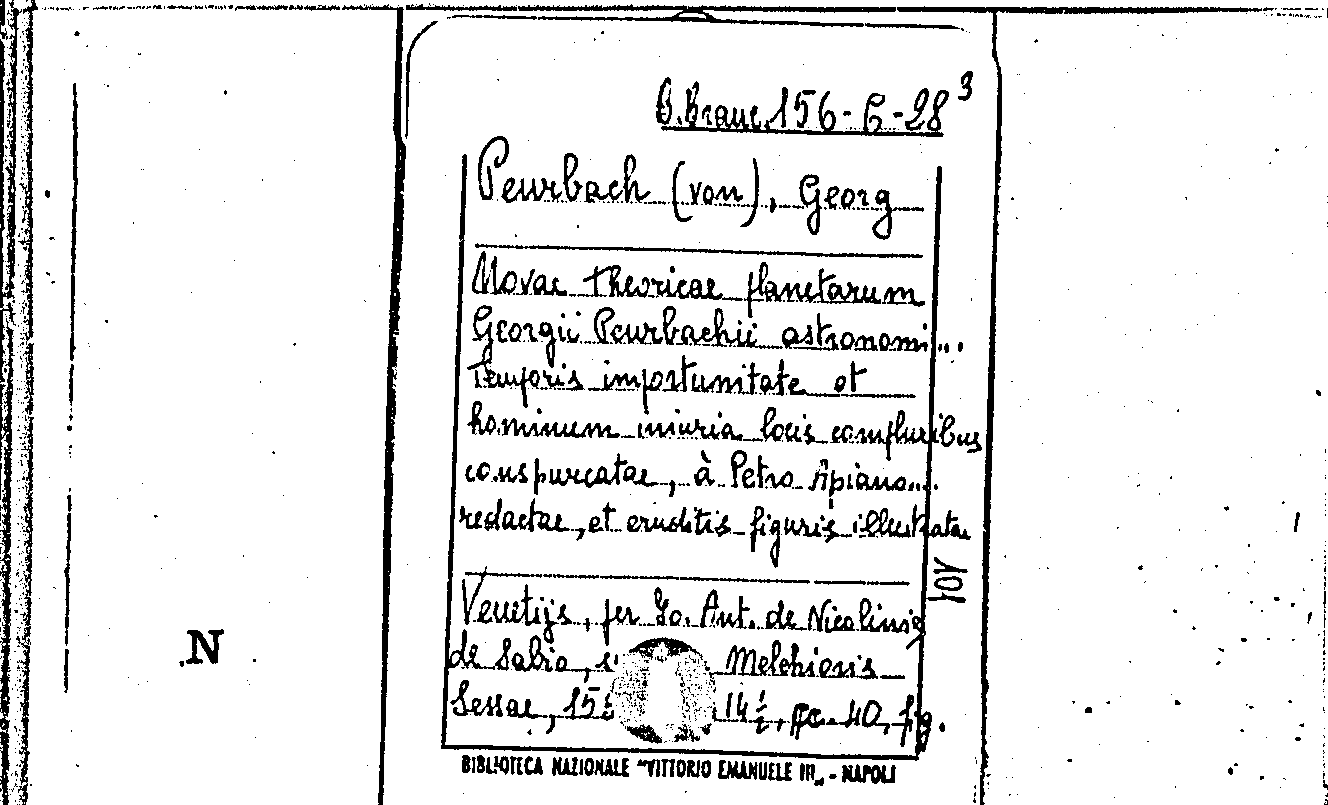 B.Branc.156-C-28³
Peurbach (von), Georg
Novae theoricae planetarum
Georgii Peurbachii astronomi...
temporis importunitate et
hominum iniuria locis compluribus
conspurcatae, à Petro Apiano...
redactae, et eruditis figuris illustratae
Venetijs, per Io. Ant. de Nicolinis
de Sabio, Melchioris
Sessae, 14½, cc. 40, fig.
N
BIBLIOTECA NAZIONALE "VITTORIO EMANUELE III„ - NAPOLI